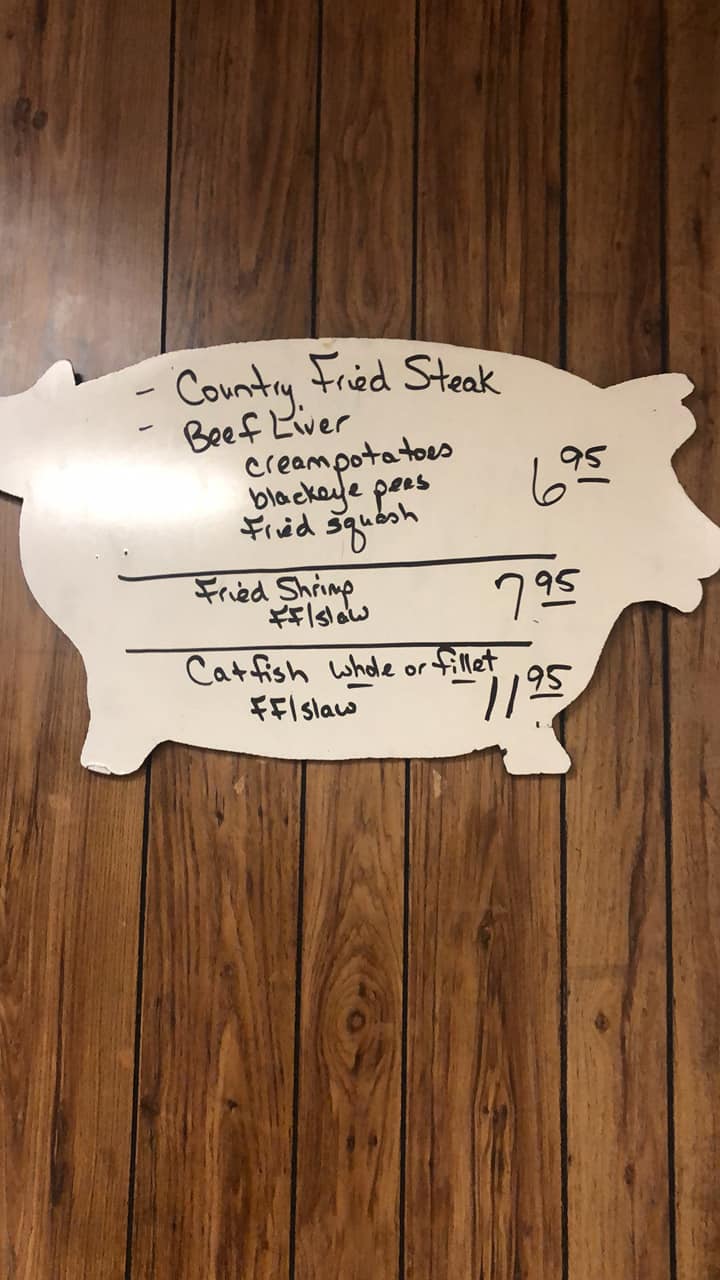 - Country Fried Steak
- Beef Liver
creampotatoes
blackeye peas
Fried squash
6 95
Fried Shrimp 7 95
FF/slaw
Catfish whole or fillet
FF/slaw 11 95